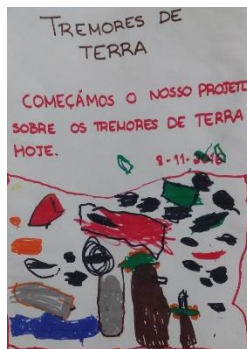 TREMORES DE
TERRA
COMEÇÁMOS O NOSSO PROJETO
SOBRE OS TREMORES DE TERRA
HOJE.
8-11-2016